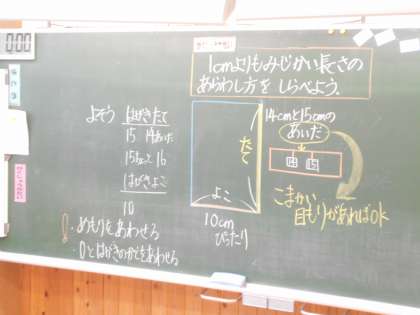 0:00
1cmよりもみじかい長さの
あらわし方を しらべよう。
よそう
はがきたて
15 14あいだ
15cmと16
はがきよこ
10
たて
よこ
10cm
ぴったり
14cmと15cmの
あいだ
14 15
こまかい
目もりがあればOK
・めもりをあわせる
・0とはがきのかどをあわせる